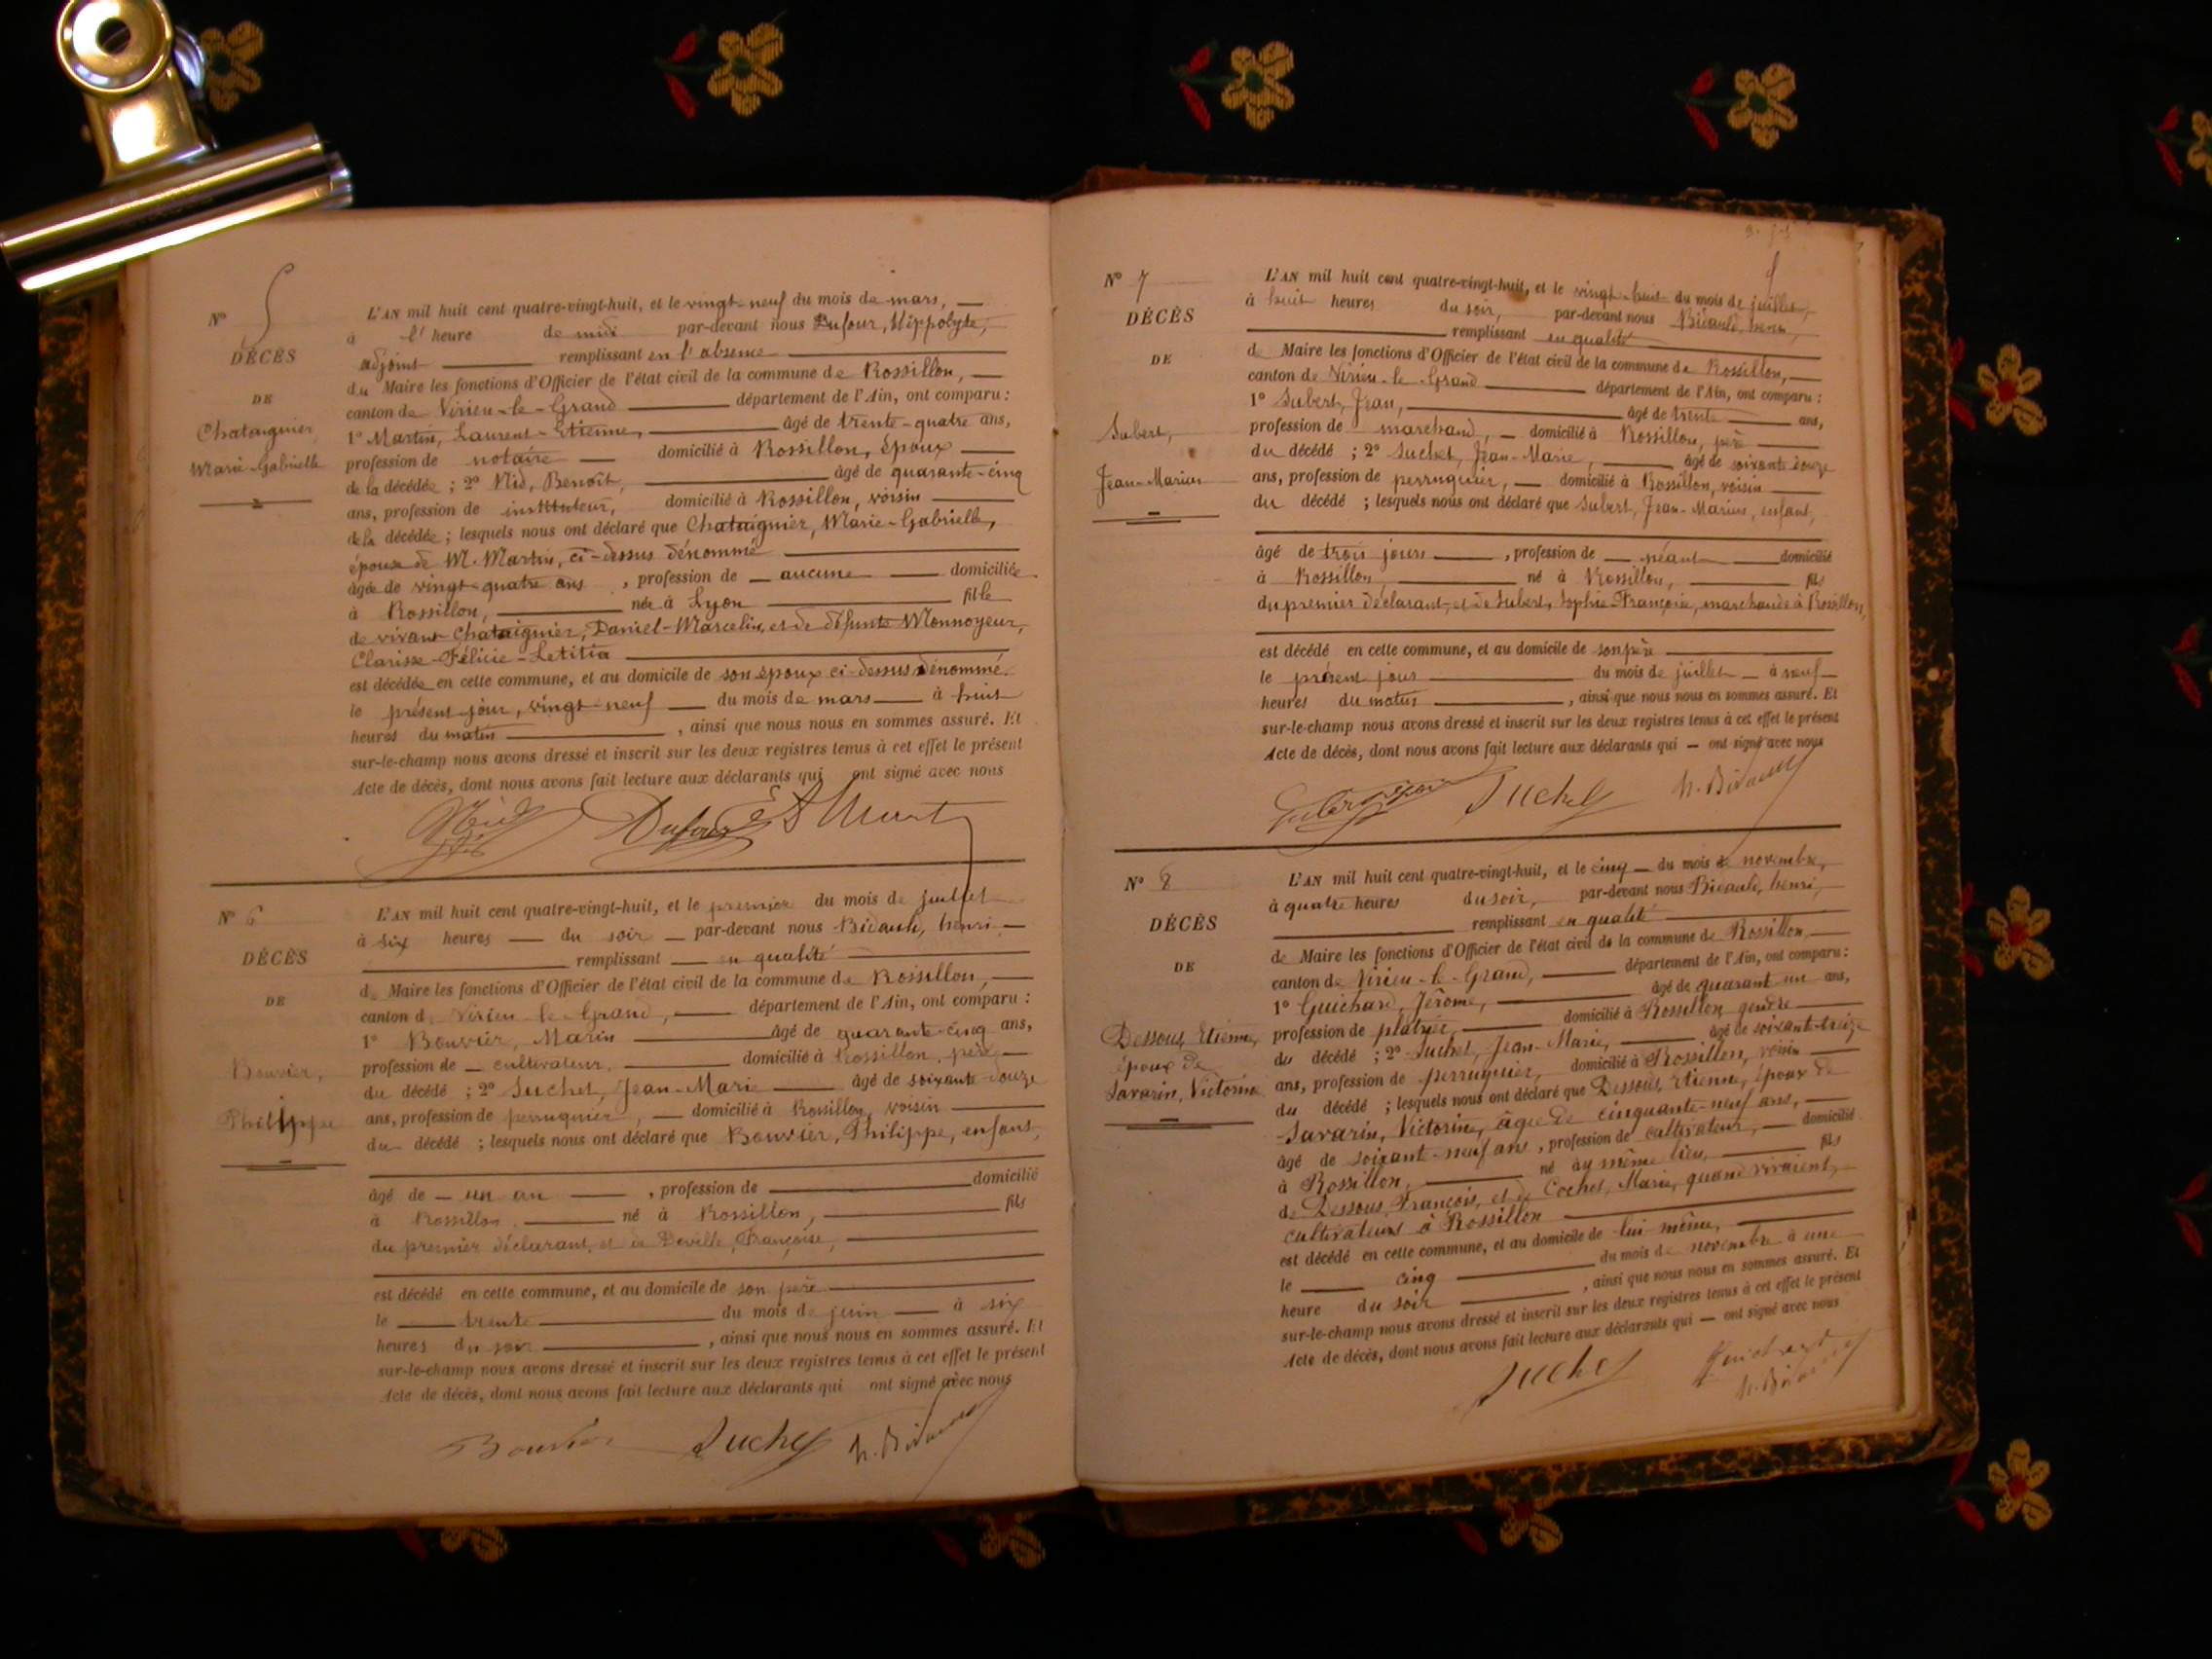 N° 5
DÉCÈS
DE
Chataignier,
Marie-Gabrielle
L'AN mil huit cent quatre-vingt-huit, et le vingt-neuf du mois de mars,
à l'heure de midi par-devant nous Dufour, Hippolyte,
adjoint remplissant en l'absence
du Maire les fonctions d'Officier de l'état civil de la commune de Rossillon,
canton de Virieu-le-Grand département de l'Ain, ont comparu :
1° Martin, Laurent-Etienne, âgé de trente-quatre ans,
profession de notaire domicilié à Rossillon, époux
de la décédée ; 2° Nid, Benoît, âgé de quarante-cinq
ans, profession de instituteur, domicilié à Rossillon, voisin
de la décédée ; lesquels nous ont déclaré que Chataignier, Marie-Gabrielle,
épouse de M. Martin, ci-dessus dénommé
âgée de vingt-quatre ans, profession de aucune domiciliée
à Rossillon, née à Lyon fille
de vivant Chataignier, Daniel-Marcelin, et de défunte Monnoyeur,
Clarisse-Félicie-Letitia
est décédée en cette commune, et au domicile de son époux ci-dessus dénommé
le présent jour, vingt-neuf du mois de mars à huit
heures du matin, ainsi que nous nous en sommes assuré. Et
sur-le-champ nous avons dressé et inscrit sur les deux registres tenus à cet effet le présent
Acte de décès, dont nous avons fait lecture aux déclarants qui ont signé avec nous
Dufour
N° 6
DÉCÈS
DE
Bouvier,
Philippe
L'AN mil huit cent quatre-vingt-huit, et le premier du mois de juillet
à six heures du soir par-devant nous Bidault, henri,
remplissant en qualité
de Maire les fonctions d'Officier de l'état civil de la commune de Rossillon,
canton de Virieu-le-Grand, département de l'Ain, ont comparu :
1° Bouvier, Marin âgé de quarante-cinq ans,
profession de cultivateur, domicilié à Rossillon, père
du décédé ; 2° Suchet, Jean-Marie âgé de soixante-douze
ans, profession de perruquier, domicilié à Rossillon, voisin
du décédé ; lesquels nous ont déclaré que Bouvier, Philippe, enfant,
âgé de un an, profession de domicilié
à Rossillon, né à Rossillon, fils
du premier déclarant, et de Deville, Françoise,
est décédé en cette commune, et au domicile de son père
le trente du mois de juin à six
heures du soir, ainsi que nous nous en sommes assuré. Et
sur-le-champ nous avons dressé et inscrit sur les deux registres tenus à cet effet le présent
Acte de décès, dont nous avons fait lecture aux déclarants qui ont signé avec nous
Bouvier Suchet h. Bidault
N° 7
DÉCÈS
DE
Jubert,
Jean-Marius
L'AN mil huit cent quatre-vingt-huit, et le vingt-huit du mois de juillet,
à huit heures du soir, par-devant nous Bidault, henri,
remplissant en qualité
de Maire les fonctions d'Officier de l'état civil de la commune de Rossillon,
canton de Virieu-le-Grand département de l'Ain, ont comparu :
1° Jubert, Jean, âgé de trente ans,
profession de marchand, domicilié à Rossillon, père
du décédé ; 2° Suchet, Jean-Marie, âgé de soixante-douze
ans, profession de perruquier, domicilié à Rossillon, voisin
du décédé ; lesquels nous ont déclaré que Jubert, Jean-Marius, enfant,
âgé de trois jours, profession de néant domicilié
à Rossillon, né à Rossillon, fils
du premier déclarant, et de Jubert, Sophie-Françoise, marchande à Rossillon,
est décédé en cette commune, et au domicile de son père
le présent jour du mois de juillet à neuf
heures du matin, ainsi que nous nous en sommes assuré. Et
sur-le-champ nous avons dressé et inscrit sur les deux registres tenus à cet effet le présent
Acte de décès, dont nous avons fait lecture aux déclarants qui ont signé avec nous
Suchet h. Bidault
N° 8
DÉCÈS
DE
Dessous, Etienne,
époux de
Savarin, Victorine
L'AN mil huit cent quatre-vingt-huit, et le cinq du mois de novembre,
à quatre heures du soir, par-devant nous Bidault, henri,
remplissant en qualité
de Maire les fonctions d'Officier de l'état civil de la commune de Rossillon
canton de Virieu-le-Grand, département de l'Ain, ont comparu :
1° Guichard, Jérôme, âgé de quarant un ans,
profession de platrier, domicilié à Rossillon, gendre
du décédé ; 2° Suchet, Jean-Marie, âgé de soixante-treize
ans, profession de perruquier, domicilié à Rossillon, voisin
du décédé ; lesquels nous ont déclaré que Dessous, Etienne, époux de
Savarin, Victorine, âgée de cinquante-neuf ans,
âgé de soixant-neuf ans, profession de cultivateur, domicilié
à Rossillon, né au même lieu, fils
de Dessous, François, et de Cochet, Marie, quand vivaient,
cultivateurs à Rossillon
est décédé en cette commune, et au domicile de lui-même,
le cinq du mois de novembre à une
heure du soir, ainsi que nous nous en sommes assuré. Et
sur-le-champ nous avons dressé et inscrit sur les deux registres tenus à cet effet le présent
Acte de décès, dont nous avons fait lecture aux déclarants qui ont signé avec nous
Suchet Guichard
h. Bidault